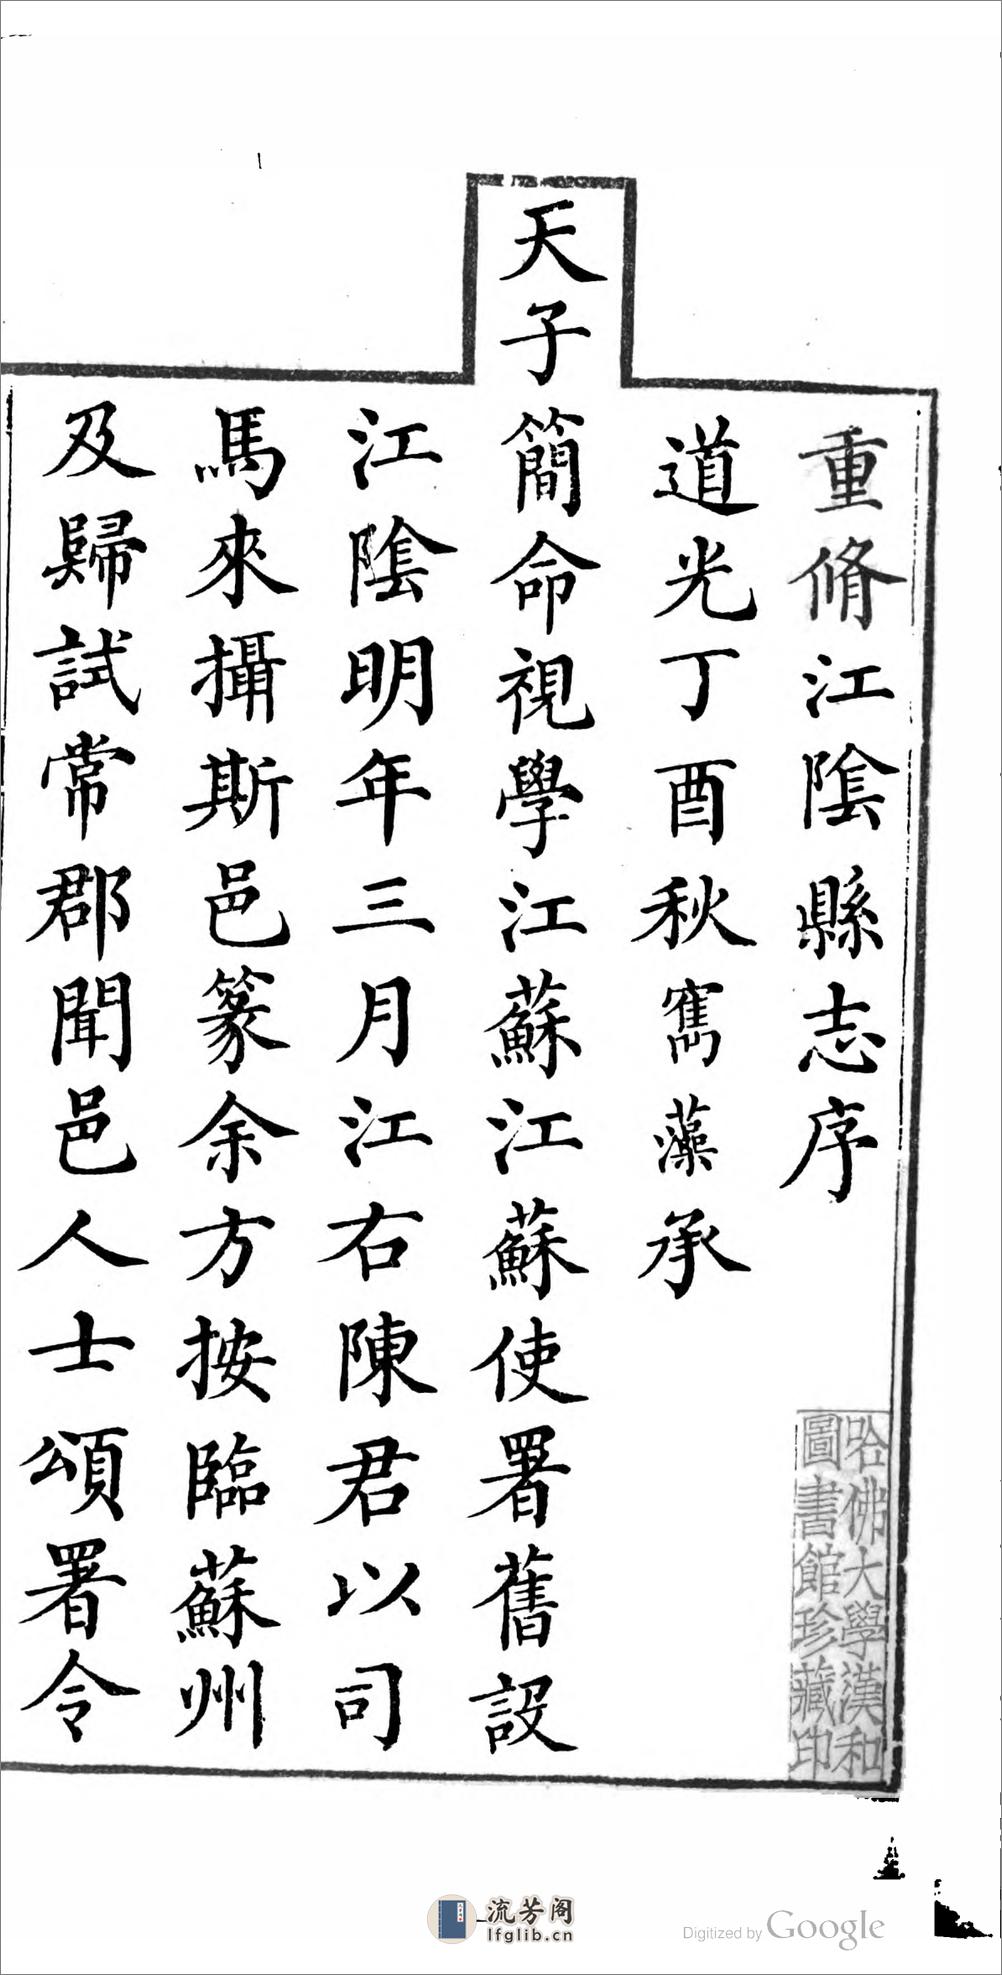 重脩江陰縣志序
道光丁酉秋寯藻承
天子簡命視學江蘇江蘇使署舊設
江陰明年三月江右陳君以司
馬來攝斯邑篆余方按臨蘇州
及歸試常郡聞邑人士頌署令
哈佛大學漢和
圖書館珍藏印
流芳阁
lfglib.cn
Digitized by Google